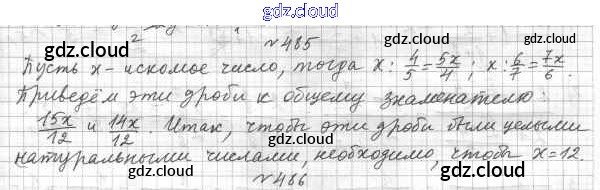 gdz.cloud
№485
Пусть x - искомое число, тогда x : 4/5 = 5x/4 ; x : 6/7 = 7x/6 .
Приведём эти дроби к общему знаменателю:
15x/12 и 14x/12 . Итак, чтобы эти дроби были целыми
натуральными числами, необходимо, чтобы x = 12.
№486
gdz.cloud
gdz.cloud
gdz.cloud
gdz.cloud
gdz.cloud
gdz.cloud
gdz.cloud